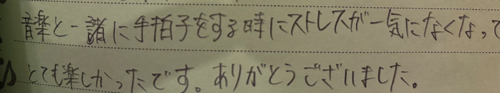 音楽と一諸に手拍子をする時にストレスが一気になくなって
とても楽しかったです。ありがとうございました。